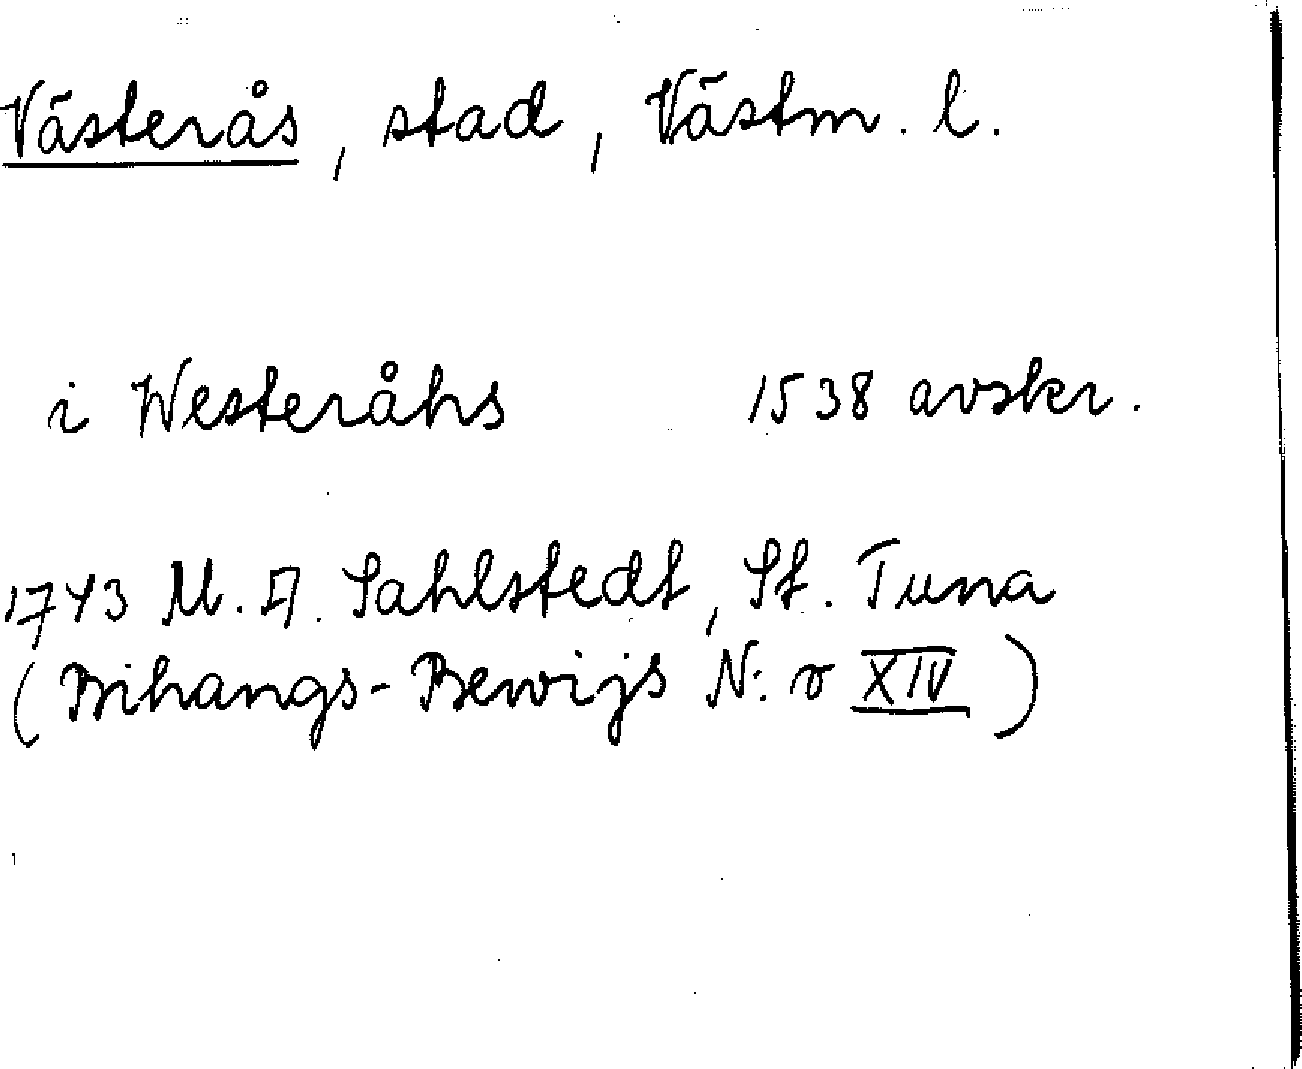 Västerås, stad, Västm. l.
i Westeråhs 1538 avskr.
1743 M. A. Sahlstedt, St. Tuna
(Bihangs-Bewijs N:o XIV)